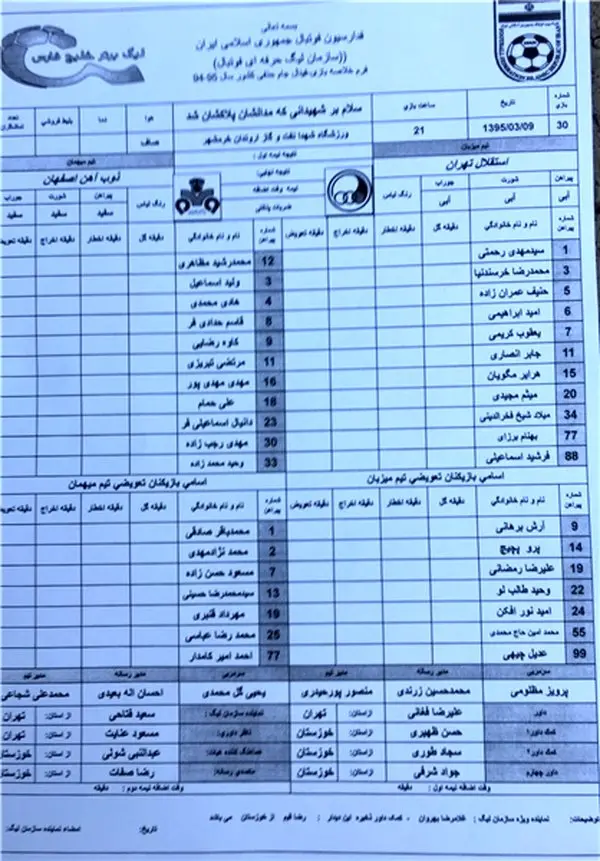 بسمه تعالی
فدراسیون فوتبال جمهوری اسلامی ایران
((سازمان لیگ حرفه ای فوتبال))
فرم خلاصه بازی فینال جام حذفی کشور سال 95-94
لیگ برتر خلیج فارس
شماره بازی تاریخ ساعت بازی سلام بر شهیدانی که مدالشان پلاکشان شد هوا دما بلیط فروشی تعداد تماشاگران
30 1395/03/09 21 ورزشگاه شهدا نفت و گاز اروندان خرمشهر صاف
تیم میزبان نتیجه نیمه اول: تیم میهمان
استقلال تهران نتیجه نهایی: ذوب آهن اصفهان
پیراهن شورت جوراب رنگ لباس نیمه وقت اضافه رنگ لباس پیراهن شورت جوراب
آبی آبی آبی ضربات پنالتی سفید سفید سفید
شماره پیراهن نام و نام خانوادگی دقیقه گل دقیقه اخطار دقیقه اخراج دقیقه تعویض شماره پیراهن نام و نام خانوادگی دقیقه گل دقیقه اخطار دقیقه اخراج دقیقه تعویض
1 سیدمهدی رحمتی 12 محمدرشید مظاهری
3 محمدرضا خرسندنیا 3 ولید اسماعیل
5 حنیف عمران زاده 4 هادی محمدی
6 امید ابراهیمی 8 قاسم حدادی فر
7 یعقوب کریمی 9 کاوه رضایی
11 جابر انصاری 11 مرتضی تبریزی
15 هرایر مگویان 16 مهدی مهدی پور
20 میثم مجیدی 18 علی حمام
34 میلاد شیخ فخرالدینی 23 دانیال اسماعیلی فر
77 بهنام برزای 30 مهدی رجب زاده
88 فرشید اسماعیلی 33 وحید محمد زاده
اسامی بازیکنان تعویضی تیم میزبان اسامی بازیکنان تعویضی تیم میهمان
شماره پیراهن نام و نام خانوادگی دقیقه گل دقیقه اخطار دقیقه اخراج دقیقه تعویض شماره پیراهن نام و نام خانوادگی دقیقه گل دقیقه اخطار دقیقه اخراج دقیقه تعویض
9 آرش برهانی 1 محمدباقر صادقی
14 پرو پچیچ 2 محمد نژادمهدی
19 علیرضا رمضانی 7 مسعود حسن زاده
22 وحید طالب لو 13 سیدمحمدرضا حسینی
24 امید نور افکن 19 مهرداد قنبری
55 محمد امین حاج محمدی 25 محمد رضا عباسی
99 عدیل چیهی 77 احمد امیر کامدار
سرمربی مدیر رسانه مدیر تیم سرمربی مدیر رسانه مدیر تیم
پرویز مظلومی محمدحسین زرندی منصور پورحیدری یحیی گل محمدی احسان اله بعیدی محمدعلی شجاعی
داور: علیرضا فغانی ازاستان: تهران نماینده سازمان لیگ: سعید فتاحی از استان: تهران
کمک داور1: حسن ظهیری ازاستان: خوزستان ناظر داوری: مسعود عنایت از استان: تهران
کمک داور2: سجاد طوری ازاستان: خوزستان هماهنگ کننده هیات: عبدالنبی شولی از استان: خوزستان
داور چهارم جواد شرفی ازاستان: خوزستان متصدی رسانه: رضا صفات از استان: خوزستان
وقت اضافه نیمه اول: دقیقه وقت اضافه نیمه دوم: دقیقه
توضیحات: نماینده ویژه سازمان لیگ: غلامرضا بهروان - کمک داور ذخیره این دیدار: رضا قیم از خوزستان می باشد
تاریخ: امضاء نماینده سازمان لیگ: